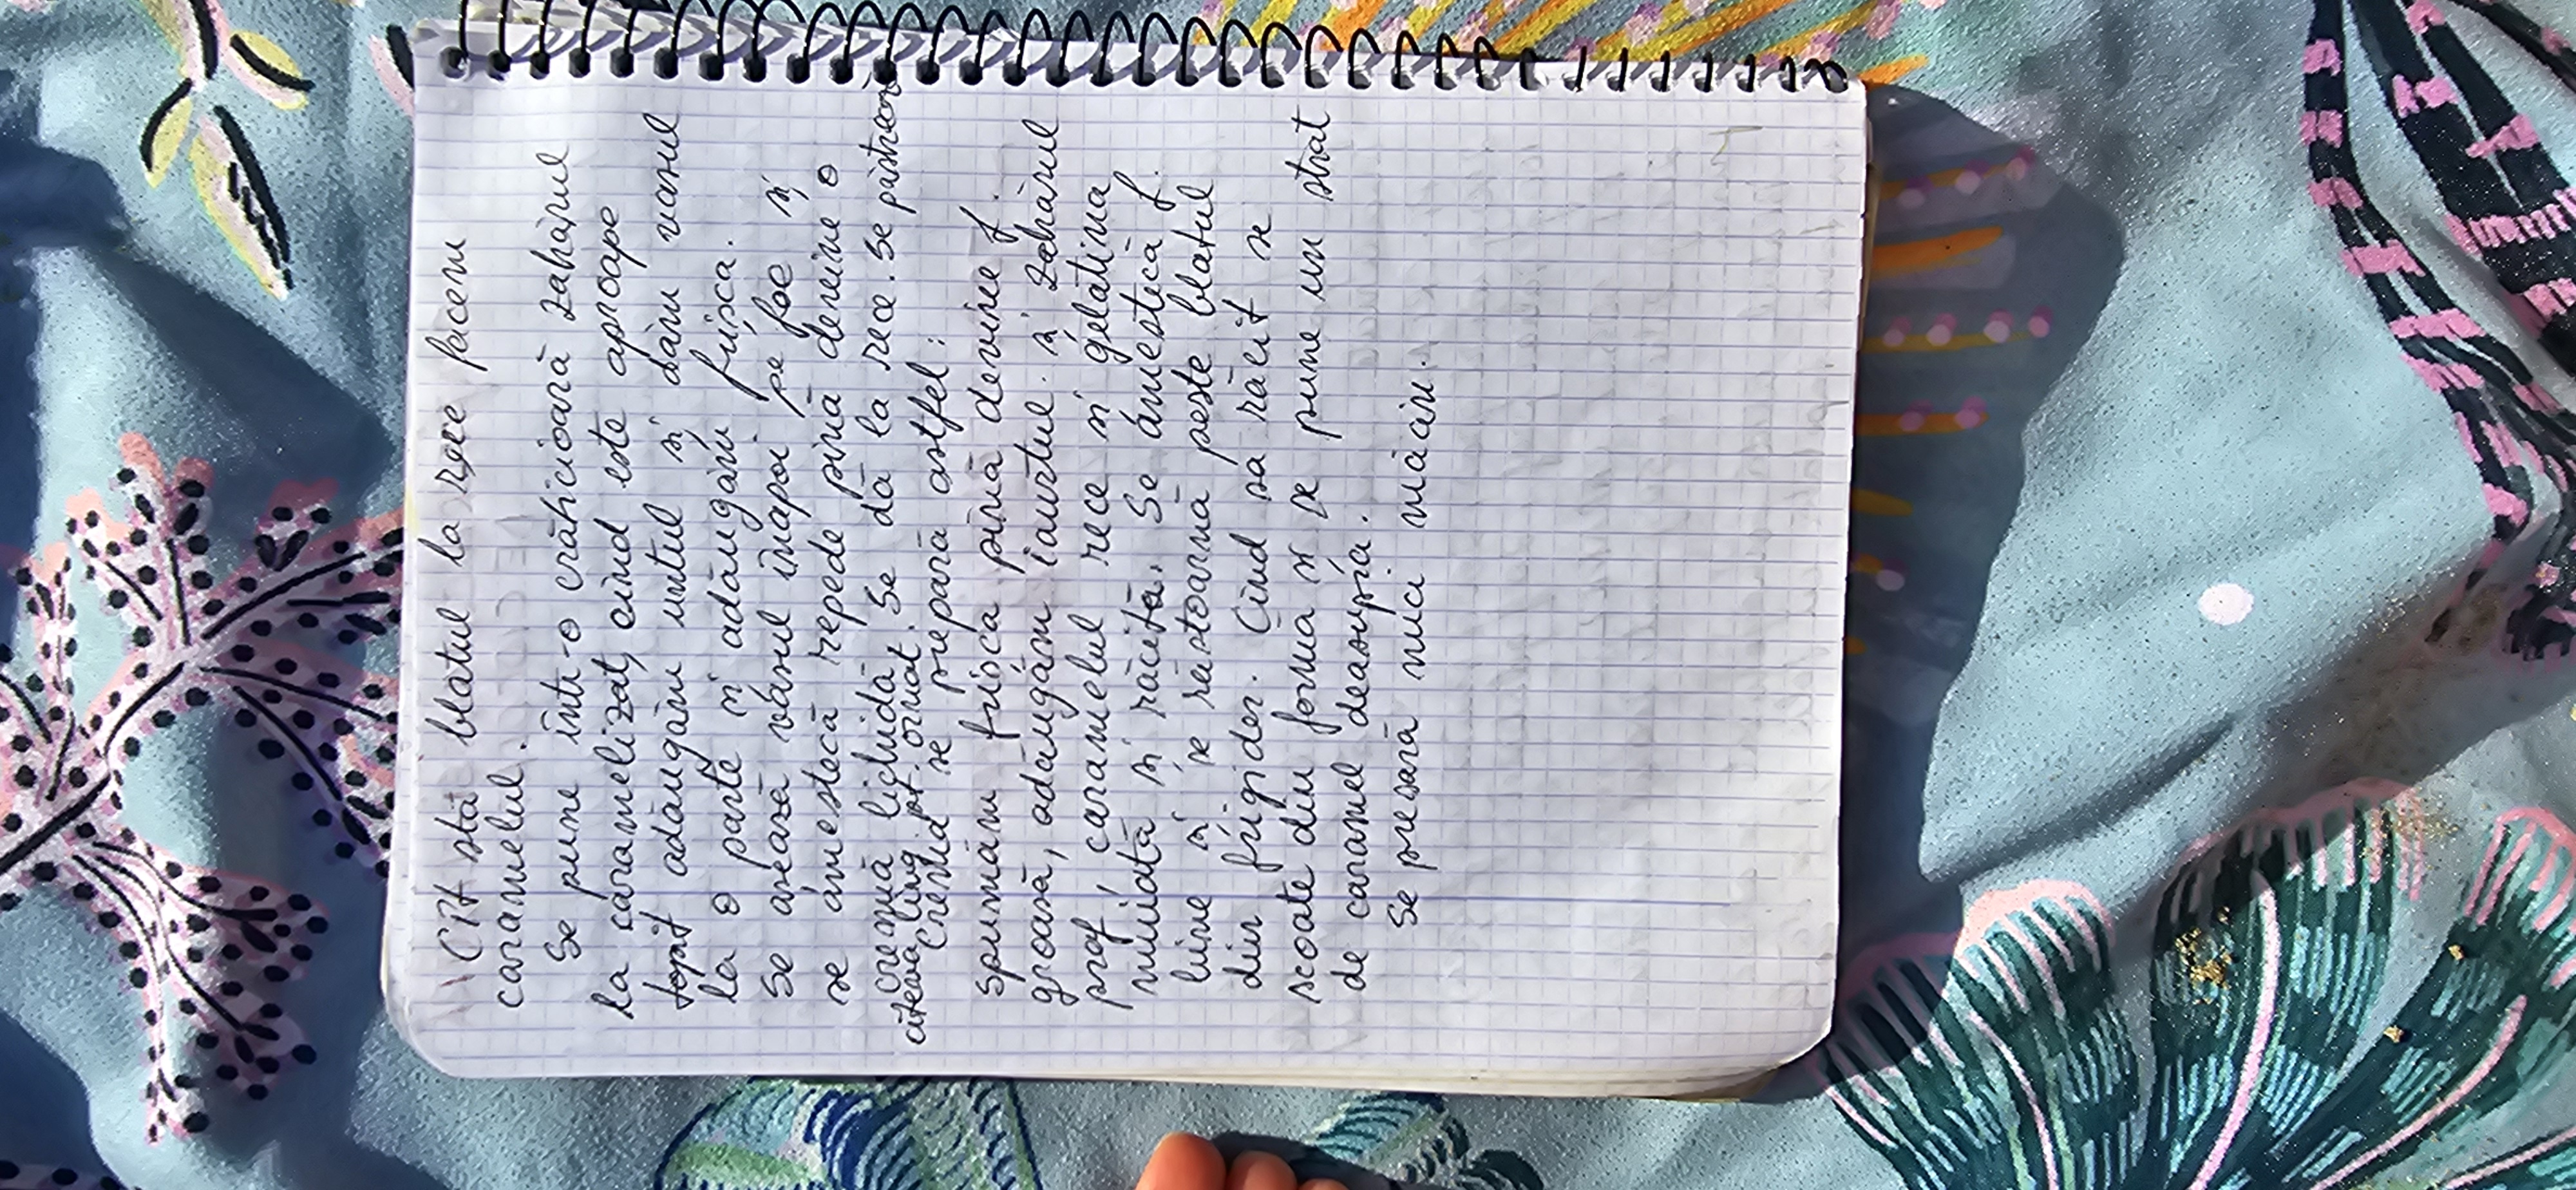 Cît stă blatul la rece facem
caramelul.
Se pune într-o crăticioară zahărul
la caramelizat, cînd este aproape
topit adăugăm untul și dăm vasul
la o parte și adăugăm frișca.
Se așează vasul înapoi pe foc și
se amestecă repede pînă devine o
cremă lichidă. Se dă la rece. Se păstrează
cîteva ling. pt. ornat.
Crema se prepară astfel:
spumăm frișca pînă devine f.
groasă, adăugăm iaurtul și zahărul
praf, caramelul rece și gelatina
muiată și răcită. Se amestică f.
bine și se răstoarnă peste blatul
din frigider. Cînd sa răcit se
scoate din formă și se pune un strat
de caramel deasupra.
Se presară nuci măcin.